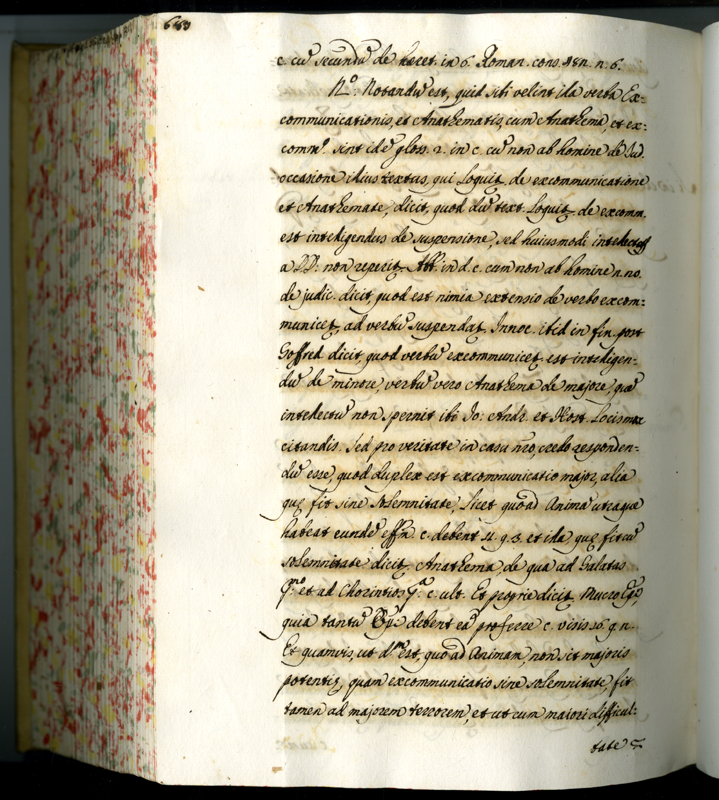 683
c. cū secundū de hæret. in 6. Roman. cons. n. 6.
N.º: Notandū est, quid sibi velint illa verba Ex:
communicationis, et Anathematis, cum Anathema, et ex:
comm. sint idē gloss. 2. in c. cū non ab homine de Jud.
occasione illius textus, qui Loquit. de excommunicatione
et Anathemate, dicit, quod dū text. Loquit. de excomm.
est intelligendus de suspensione, sed huiusmodi intellectus
a DD: non reperit. Abb. in d. c. cum non ab homine n. no.
de judic. dicit, quod est nimia extensio de verbo excom:
municet, ad verbū suspendat. Innoc. ibid in fin. post
Goffred. dicit, quod verbū excommunicet, est intelligen:
dū de minore, verbū vero Anathema de majore, quē
intellectū non spernit ibi Jo: Andr. et Host. Locis mox
citandis. Sed pro veritate in casu nro, credo responden:
dū esse, quod duplex est excommunicatio major, alia
quę fit sine solemnitate, licet quoad Anima utraque
habeat eundē effm. c. debent 11. q. 3. et illa quę fit cū
solemnitate dicit. Anathema, de qua ad Galatas
pmo et ad Chorintios pa: c. ult. Et proprie dicit. Mucro Epi,
quia tantū Epi debent eā proferre c. visis 16. q. n.
Et quamvis, ut dm est, quoad Animam, non sit majoris
potentię, quam excommunicatio sine solemnitate, fit
tamen ad majorem terrorem, et ut cum maiori difficul:
tate